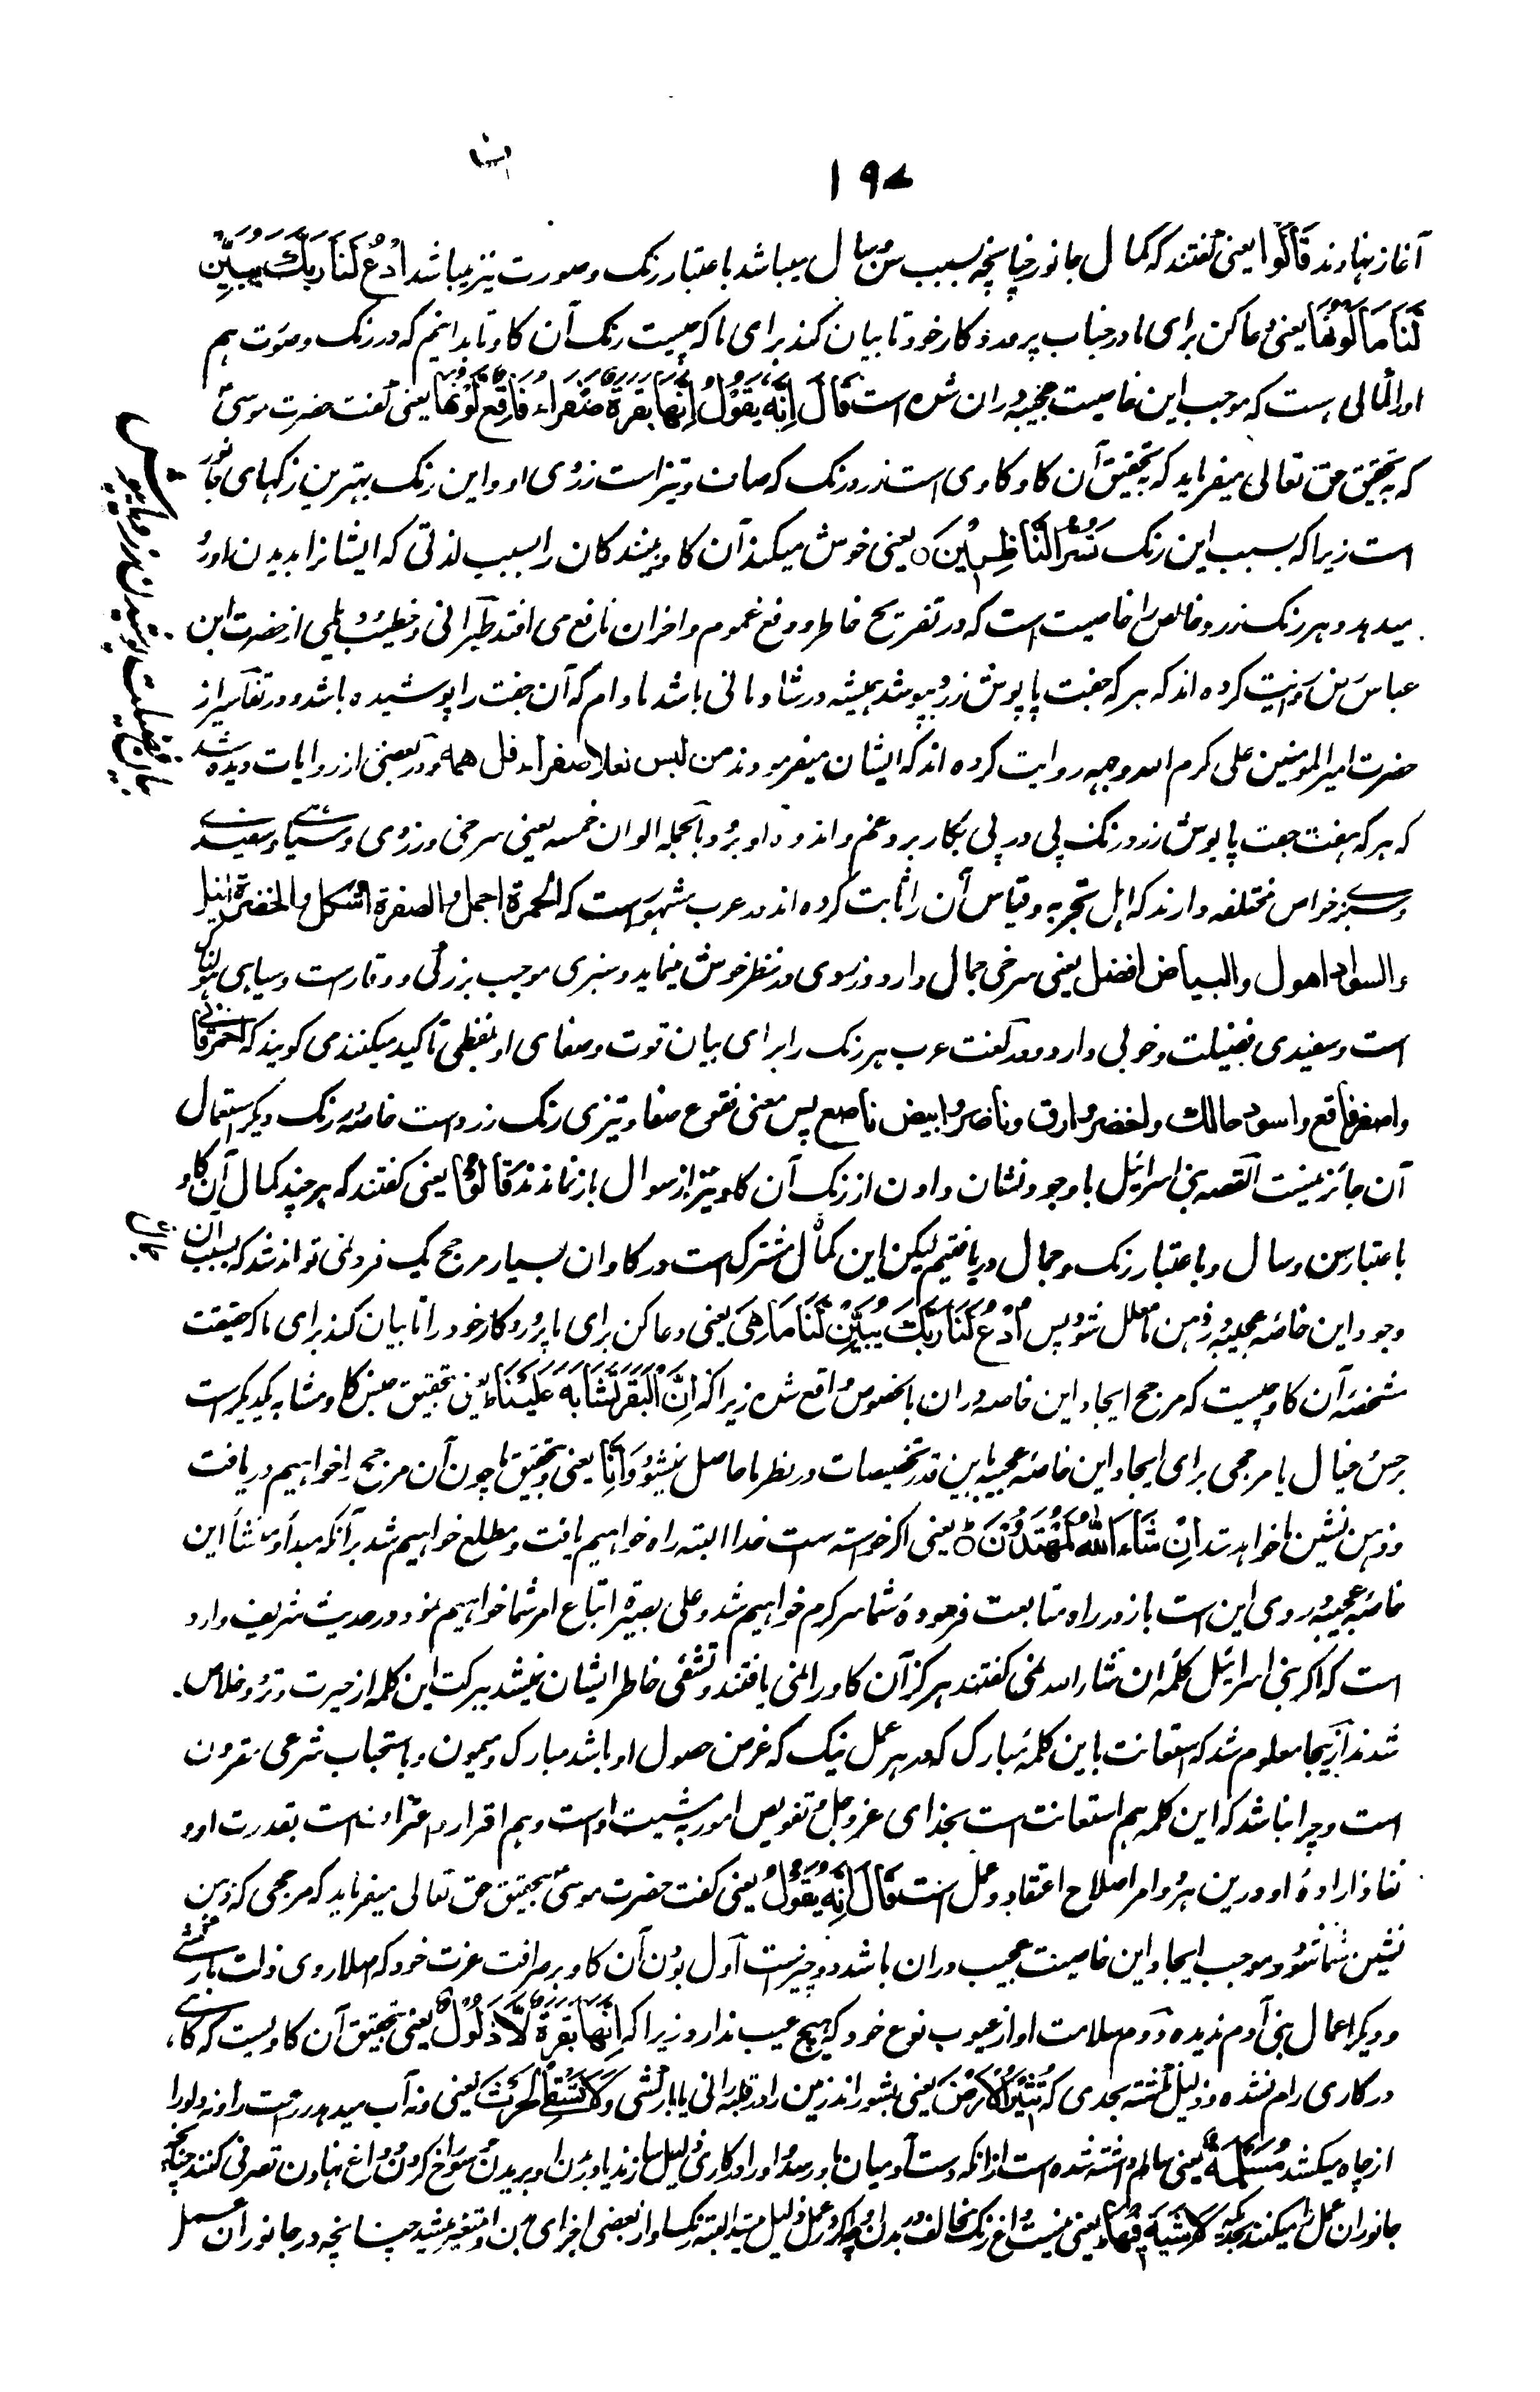 الم
۱۹۷
آغاز نهادند قَالُوا یعنی گفتند که کمال جانور چنانچه بسبب سن و سال میباشد باعتبار رنگ و صورت نیز میباشد ادْعُ لَنَا رَبَّكَ يُبَيِّن
لَّنَا مَا لَوْنُهَا یعنی دعا کن برای ما در جناب پروردگار خود تا بیان کند برای ما که چیست رنگ آن گاو تا بدانیم که در رنگ و صورت هم
او را کمالی هست که موجب این خاصیت عجیبه دران شده است قَالَ إِنَّهُ يَقُولُ إِنَّهَا بَقَرَةٌ صَفْرَاءُ فَاقِعٌ لَّوْنُهَا یعنی گفت حضرت موسیٰ
که بتحقیق حق تعالی میفرماید که بتحقیق آن گاو گاوی است زرد رنگ که صاف و تیز است زردی او و این رنگ بهترین رنگهای جانور
است زیرا که بسبب این رنگ تَسُرُّ النَّاظِرِينَ ○ یعنی خوش میکند آن گاو بینندگان را بسبب لذتی که ایشانرا بدیدن او رو
میدهد و هر رنگ زرد خالص را خاصیت است که در تفریح خاطر و دفع غموم و احزان نافع می افتد طبرانی و خطیب و دیلمی از حضرت ابن
عباس رض روایت کرده اند که هر که جفت پاپوش زرد بپوشد همیشه در شادمانی باشد مادام که آن جفت را پوشیده باشد و در تفاسیر از
حضرت امیر المومنین علی کرم الله وجهه روایت کرده اند که ایشان میفرمودند من لبس نعلا صفراء قل همه و در بعضی از روایات دیده شد
که هر که هفت جفت پاپوش زرد رنگ پی در پی بکار برد غم و اندوه او برود بالجمله الوان خمسه یعنی سرخی و زردی و سیاهی و سفیدی
و سبزی خواص مختلفه دارند که اهل تجربه و قیاس آن را ثابت کرده اند در عرب مشهور است که الحمرة اجمل والصفرة اشکل والخضرة انبل
والسواد اهول والبیاض افضل یعنی سرخی جمال دارد و زردی در نظر خوش مینماید و سبزی موجب بزرگی و وقار است و سیاهی هولناک
است و سفیدی فضیلت و خوبی دارد و در لغت عرب هر رنگ را برای بیان قوت و صفای او بلفظی تاکید میکنند می گویند که احمر قانی
واصفر فاقع واسود حالک واخضر وارق وناضر وابیض ناصع پس معنی فقوع صفا و تیزی رنگ زرد است خاصهٔ رنگ دیگر استعمال
آن جائز نیست القصه بنی اسرائیل با وجود نشان دادن از رنگ آن گاو نیز از سوال باز نماندند قَالُوا یعنی گفتند که هر چند کمال آن گاو
باعتبار سن و سال و باعتبار رنگ و جمال دریافتیم لیکن این کمال مشترک است در گاوان بسیار مرجح یک فرد نمی تواند شد که بسبب آن
وجود این خاصه عجیبه در ذهن ما معلل شود پس ادْعُ لَنَا رَبَّكَ يُبَيِّن لَّنَا مَا هِيَ یعنی دعا کن برای ما پروردگار خود را تا بیان کند برای ما که حقیقت
مشخصه آن گاو چیست که مرجح ایجاد این خاصه دران بالخصوص واقع شده زیرا که إِنَّ الْبَقَرَ تَشَابَهَ عَلَيْنَا یعنی بتحقیق جنس گاو مشابه یکدیگر است
بر حس و خیال ما مرجحی برای ایجاد این خاصه عجیبه باین قدر تخصیصات در نظر ما حاصل نمیشود وَإِنَّا یعنی و بتحقیق ما چون آن مرجح را خواهیم دریافت
و ذهن نشین ما خواهد شد إِن شَاءَ اللَّهُ لَمُهْتَدُونَ ○ یعنی اگر خواسته است خدا البته راه خواهیم یافت و مطلع خواهیم شد بر آنکه مبدأ و منشأ این
خاصه عجیبه در وی این است باز در راه متابعت فرموده شما سرگرم خواهیم شد و علی بصیرة اتباع امر شما خواهیم نمود و در حدیث شریف وارد
است که اگر بنی اسرائیل کلمهٔ ان شاء الله نمی گفتند هرگز آن گاو را نمی یافتند و تشفی خاطر ایشان نمیشد ببرکت این کلمه از حیرت و تردد خلاص
شدند از ینجا معلوم شد که استعانت باین کلمهٔ مبارک که در هر عمل نیک که غرض حصول او باشد مبارک و میمون و باستحباب شرعی مقرون
است و چرا نباشد که این کلمه هم استعانت است بخدای عز و جل و تفویض امور به مشیت او است و هم اقرار و اعتراف است بقدرت او و
نفاذ ارادهٔ او و درین هر دو امر اصلاح اعتقاد و عمل است قَالَ إِنَّهُ يَقُولُ یعنی گفت حضرت موسیٰ بتحقیق حق تعالی میفرماید که مرجحی که ذهن
نشین شما شود و موجب ایجاد این خاصیت عجیب دران باشد دو چیز است اول بودن آن گاو بر صرافت عزت خود که اصلا روی ذلت بارکشی
و دیگر اعمال بنی آدم ندیده دوم سلامت او از عیوب نوع خود که هیچ عیب ندارد زیرا که إِنَّهَا بَقَرَةٌ لَّا ذَلُولٌ یعنی بتحقیق آن گاویست که گاهی
در کاری رام نشده و ذلیل نگشته بحدی که تُثِيرُ الْأَرْضَ یعنی بشوراند زمین را در قلبه رانی یا بارکشی وَلَا تَسْقِي الْحَرْثَ یعنی و نه آب میدهد زراعت را و نه دلو را
از چاه میکشد مُسَلَّمَةٌ یعنی سالم داشته شده است از انکه دست آدمیان باو رسد و او را در کاری ذلیل سازند یا در بدن او ببریدن و سوراخ کردن و داغ نهادن تصرفی کنند چنانچه
جانوران عمل را میکنند بحدیکه لَّا شِيَةَ فِيهَا یعنی نیست داغ رنگ مخالف در بدن او چرا که اگر در عمل ذلیل میشد البته رنگ او از بعضی اجزای بدن او متغیر میشد چنانچه در جانوران عمل
بیان فضیلت پوشیدن زرد پاپوش